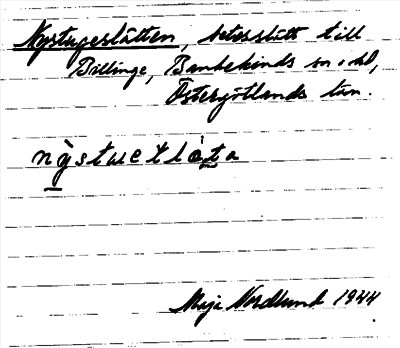 Nystugeslätten, betesslätt till
Billinge, Bankekinds sn o. hd,
Östergötlands län.
nỳstuetlȧta
Maja Nordlund 1944